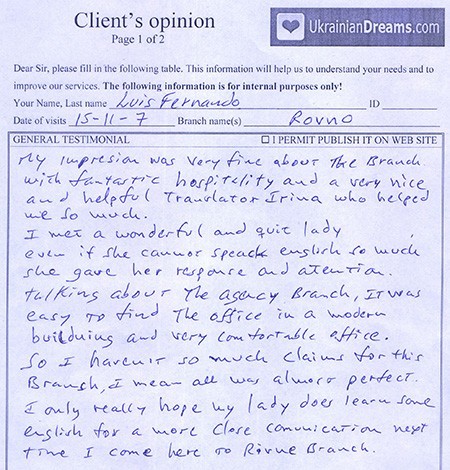 Client's opinion
Page 1 of 2
UkrainianDreams.com
Dear Sir, please fill in the following table. This information will help us to understand your needs and to
improve our services. The following information is for internal purposes only!
Your Name, Last name Luis Fernando ID
Date of visits 15-11-7 Branch name(s) Rovno
GENERAL TESTIMONIAL ☐ I PERMIT PUBLISH IT ON WEB SITE
My impresion was very fine about The Branch
with fantastic hospitality and a very nice
and helpful Translator Irina who helped
me so much.
I met a wonderful and quit lady
even if she cannot speack english so much
she gave her response and atention.
talking about The agency Branch, It was
easy to find The office in a modern
builduing and very comfortable office.
So I haven't so much claims for this
Branch, I mean all was almost perfect.
I only really hope my lady does learn some
english for a more close comunication next
time I come here to Rivne Branch.